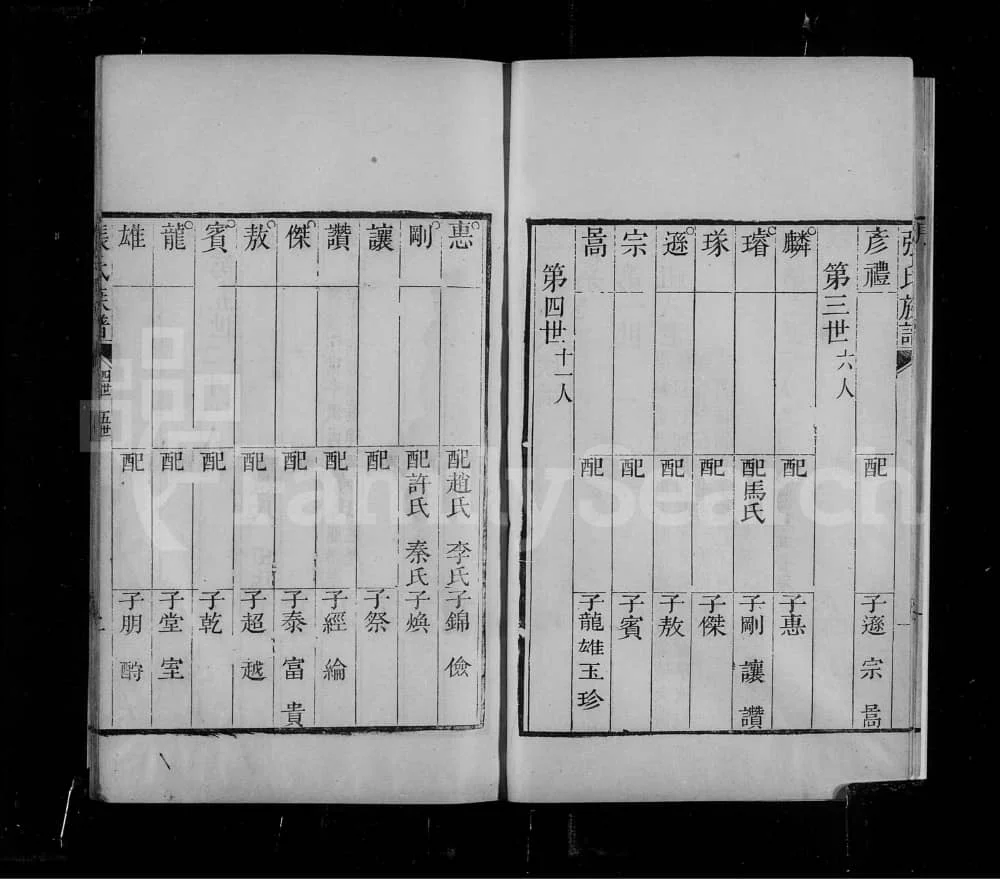 張氏族譜
彥禮 配 子遜 宗 暠
第三世 六人
麟 配 子惠
璿 配馬氏 子剛 讓 讚
琢 配 子傑
遜 配 子敖
宗 配 子賓
暠 配 子龍 雄 玉 珍
第四世 十一人
惠 配趙氏 李氏 子錦 儉
剛 配許氏 秦氏 子煥
讓 配 子祭
讚 配 子經 綸
傑 配 子泰 富 貴
敖 配 子超 越
賓 配 子乾
龍 配 子堂 室
雄 配 子朋
張氏族譜 四世 五世
FamilySearch